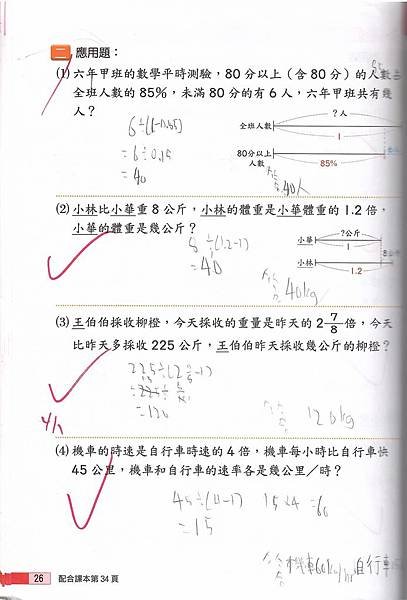 二 應用題：
(1) 六年甲班的數學平時測驗，80分以上（含80分）的人數占
全班人數的85%，未滿80分的有6人，六年甲班共有幾
人？
?人
全班人數
1
80分以上
人數
85%
6÷(1-0.85)
=6÷0.15
=40
40人
(2) 小林比小華重8公斤，小林的體重是小華體重的1.2倍，
小華的體重是幾公斤？
?公斤
小華
1
小林
1.2
8÷(1.2-1)
=40
40kg
(3) 王伯伯採收柳橙，今天採收的重量是昨天的2 7/8倍，今天
比昨天多採收225公斤，王伯伯昨天採收幾公斤的柳橙？
=120
120kg
(4) 機車的時速是自行車時速的4倍，機車每小時比自行車快
45公里，機車和自行車的速率各是幾公里／時？
45÷(4-1) 15×4=60
=15
自行車
26 配合課本第34頁